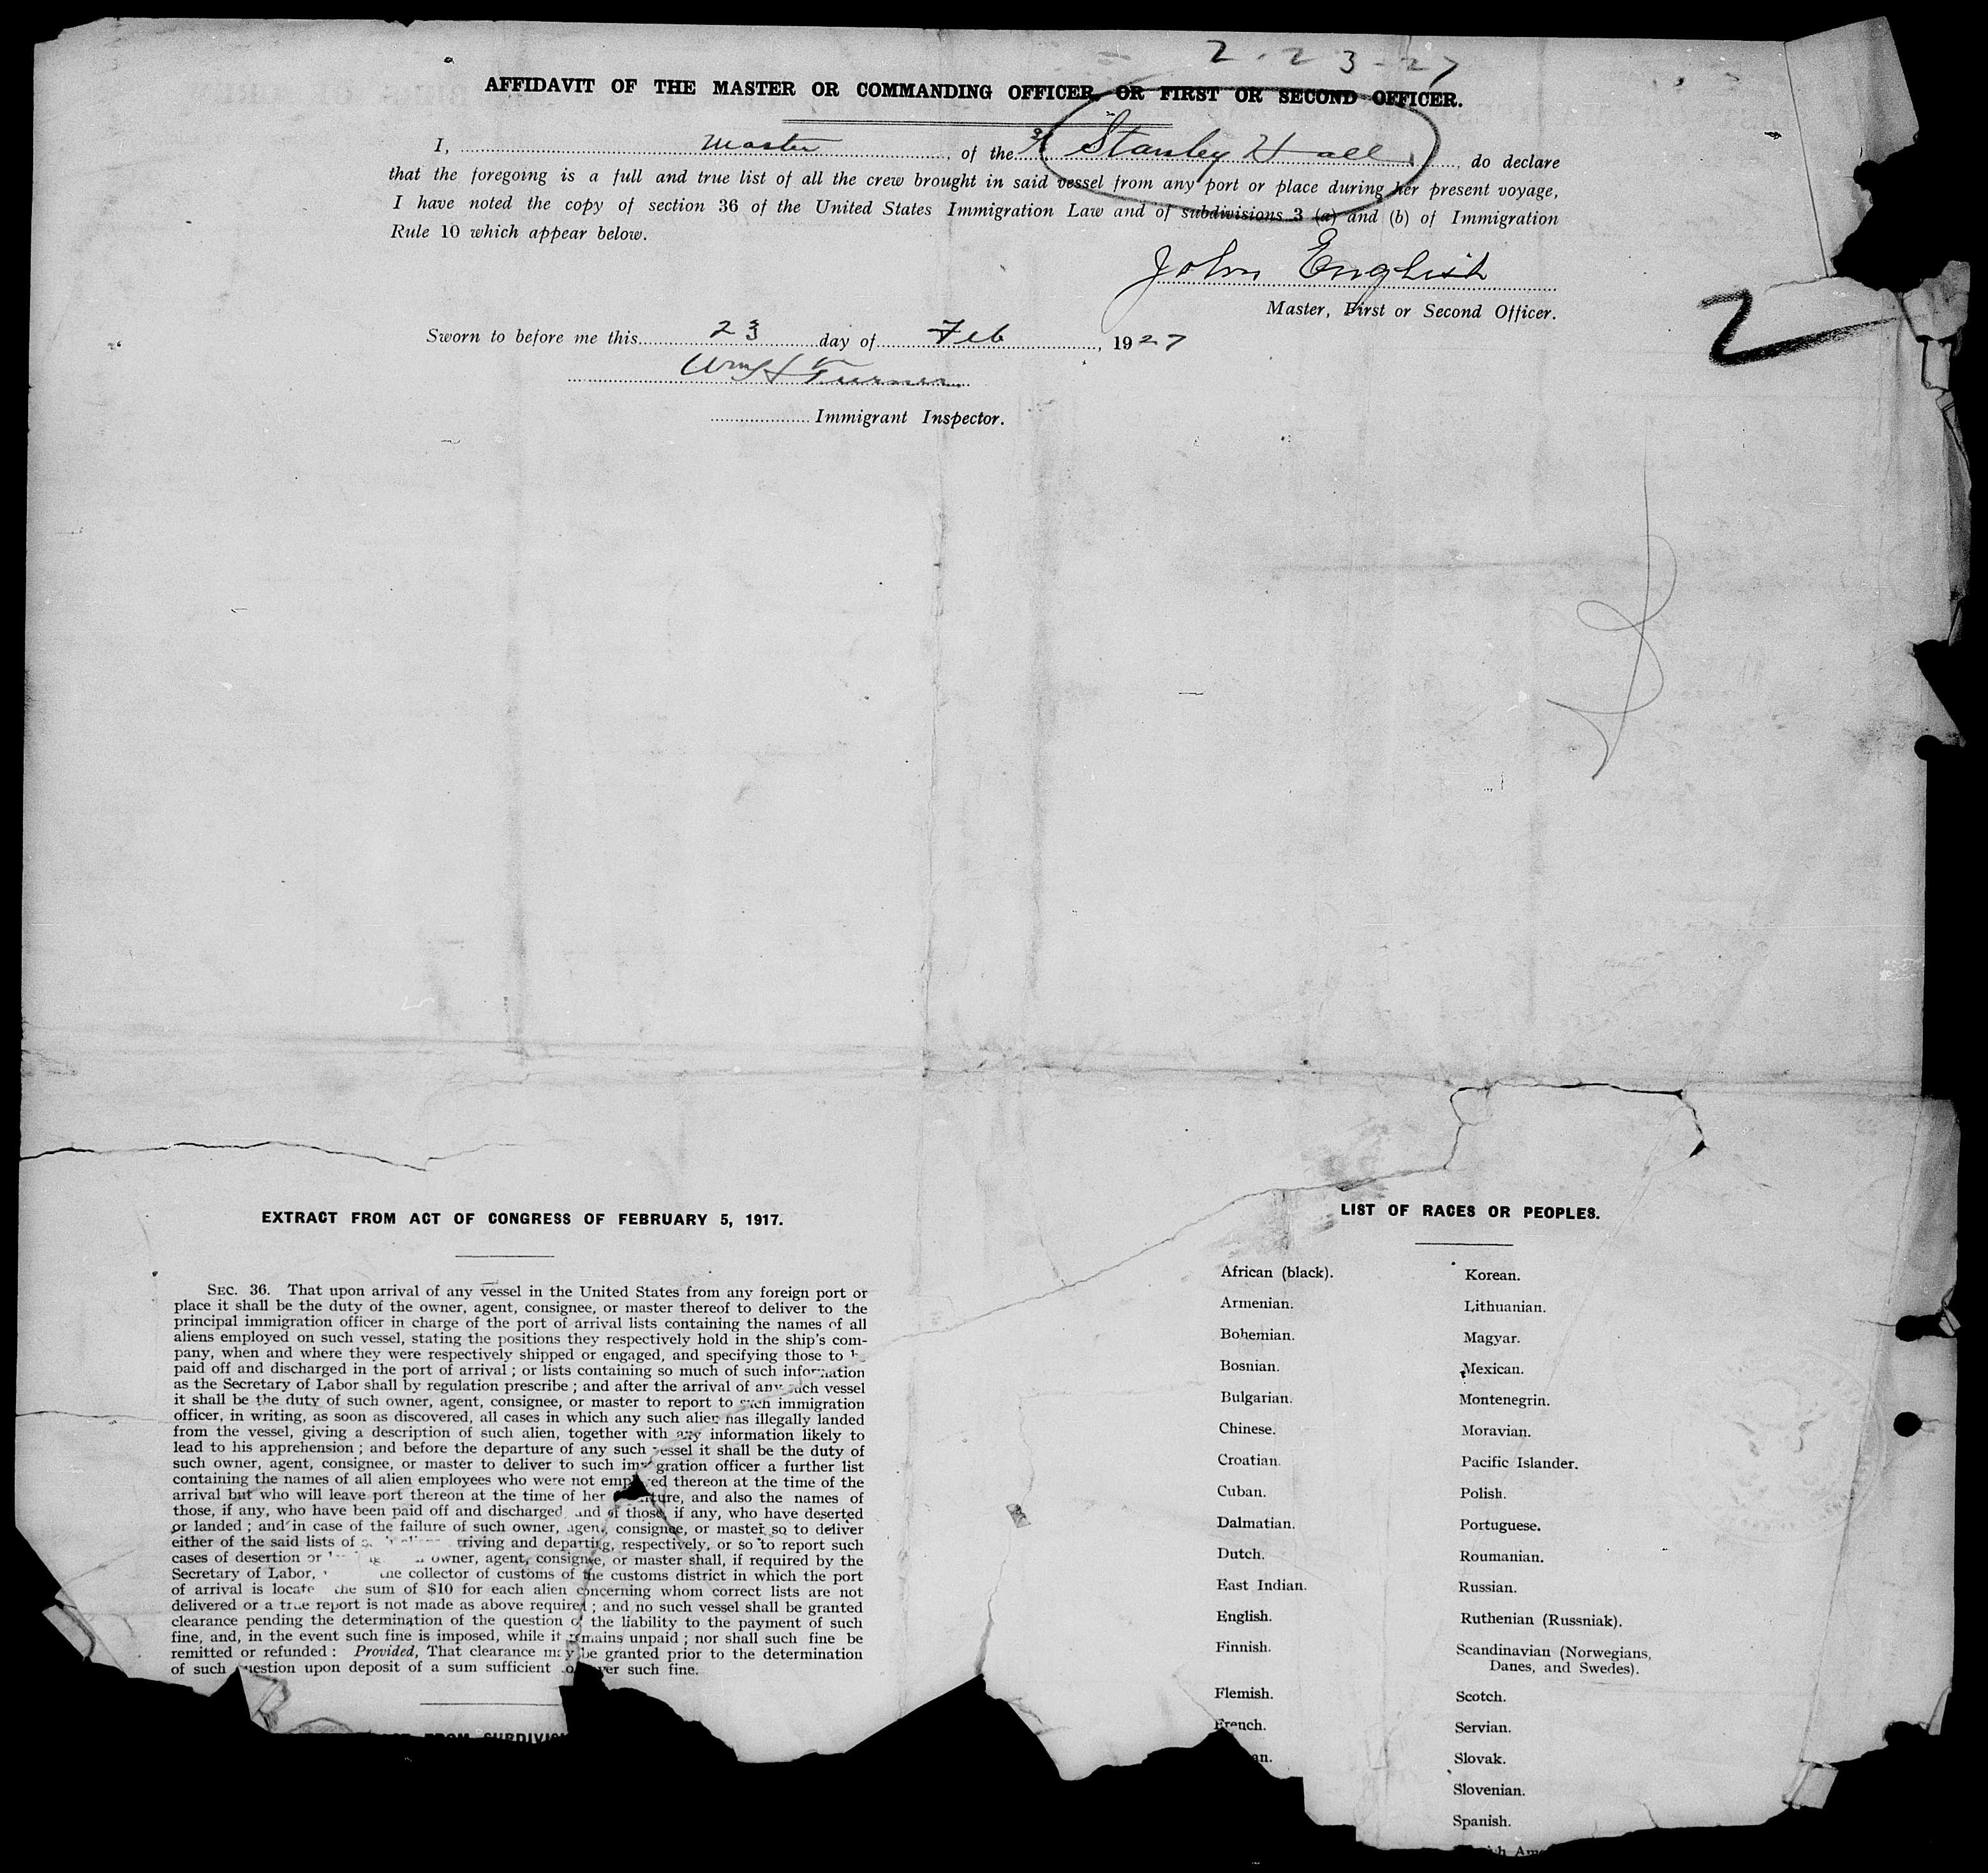 2-23-27
AFFIDAVIT OF THE MASTER OR COMMANDING OFFICER, OR FIRST OR SECOND OFFICER.
I, Master of the Stanley Hall, do declare
that the foregoing is a full and true list of all the crew brought in said vessel from any port or place during her present voyage,
I have noted the copy of section 36 of the United States Immigration Law and of subdivisions 3 (a) and (b) of Immigration
Rule 10 which appear below.
John English
Master, First or Second Officer.
2
Sworn to before me this 23 day of Feb, 1927
Wm H Turner
Immigrant Inspector.
EXTRACT FROM ACT OF CONGRESS OF FEBRUARY 5, 1917.
SEC. 36. That upon arrival of any vessel in the United States from any foreign port or
place it shall be the duty of the owner, agent, consignee, or master thereof to deliver to the
principal immigration officer in charge of the port of arrival lists containing the names of all
aliens employed on such vessel, stating the positions they respectively hold in the ship's com-
pany, when and where they were respectively shipped or engaged, and specifying those to
paid off and discharged in the port of arrival; or lists containing so much of such information
as the Secretary of Labor shall by regulation prescribe; and after the arrival of any such vessel
it shall be the duty of such owner, agent, consignee, or master to report to such immigration
officer, in writing, as soon as discovered, all cases in which any such alien has illegally landed
from the vessel, giving a description of such alien, together with any information likely to
lead to his apprehension; and before the departure of any such vessel it shall be the duty of
such owner, agent, consignee, or master to deliver to such immigration officer a further list
containing the names of all alien employees who were not employed thereon at the time of the
arrival but who will leave port thereon at the time of her departure, and also the names of
those, if any, who have been paid off and discharged, and of those, if any, who have deserted
or landed; and in case of the failure of such owner, agent, consignee, or master so to deliver
either of the said lists of arriving and departing, respectively, or so to report such
cases of desertion or owner, agent, consignee, or master shall, if required by the
Secretary of Labor, the collector of customs of the customs district in which the port
of arrival is located the sum of $10 for each alien concerning whom correct lists are not
delivered or a true report is not made as above required; and no such vessel shall be granted
clearance pending the determination of the question of the liability to the payment of such
fine, and, in the event such fine is imposed, while it remains unpaid; nor shall such fine be
remitted or refunded: Provided, That clearance may be granted prior to the determination
of such question upon deposit of a sum sufficient to cover such fine.
FROM SUBDIVIS
LIST OF RACES OR PEOPLES.
African (black).
Armenian.
Bohemian.
Bosnian.
Bulgarian.
Chinese.
Croatian.
Cuban.
Dalmatian.
Dutch.
East Indian.
English.
Finnish.
Flemish.
French.
an.
Korean.
Lithuanian.
Magyar.
Mexican.
Montenegrin.
Moravian.
Pacific Islander.
Polish.
Portuguese.
Roumanian.
Russian.
Ruthenian (Russniak).
Scandinavian (Norwegians,
Danes, and Swedes).
Scotch.
Servian.
Slovak.
Slovenian.
Spanish.